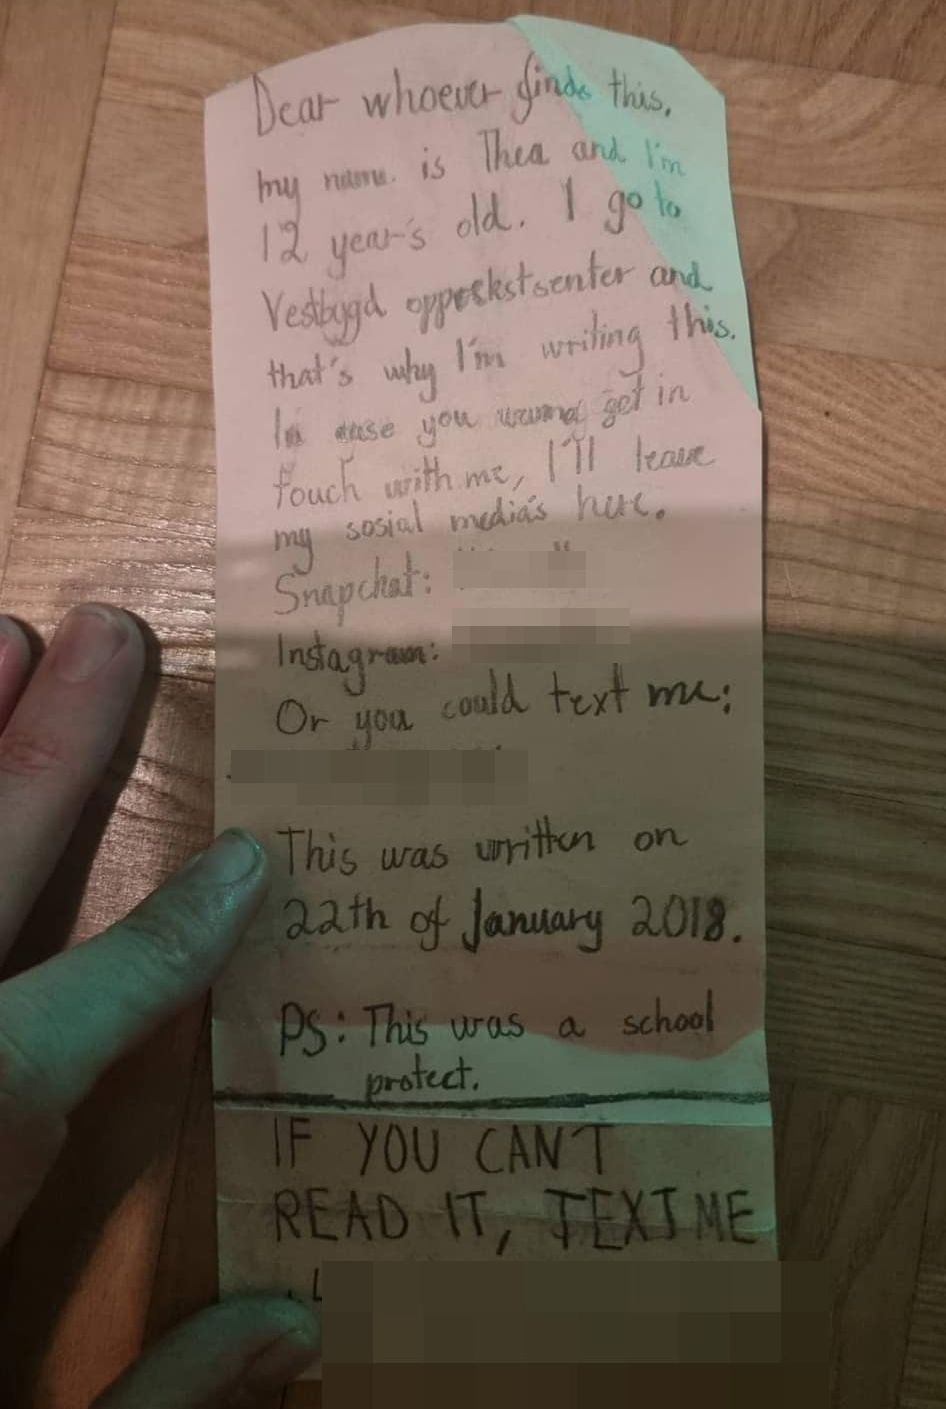 Dear whoever finds this,
my name is Thea and I'm
12 year's old. I go to
Vestbygd oppvekstsenter and
that's why I'm writing this.
In case you wanna get in
touch with me, I'll leave
my sosial media's here.
Snapchat:
Instagram:
Or you could text me:
This was written on
22th of January 2018.
PS: This was a school
protect.
IF YOU CAN'T
READ IT, TEXT ME